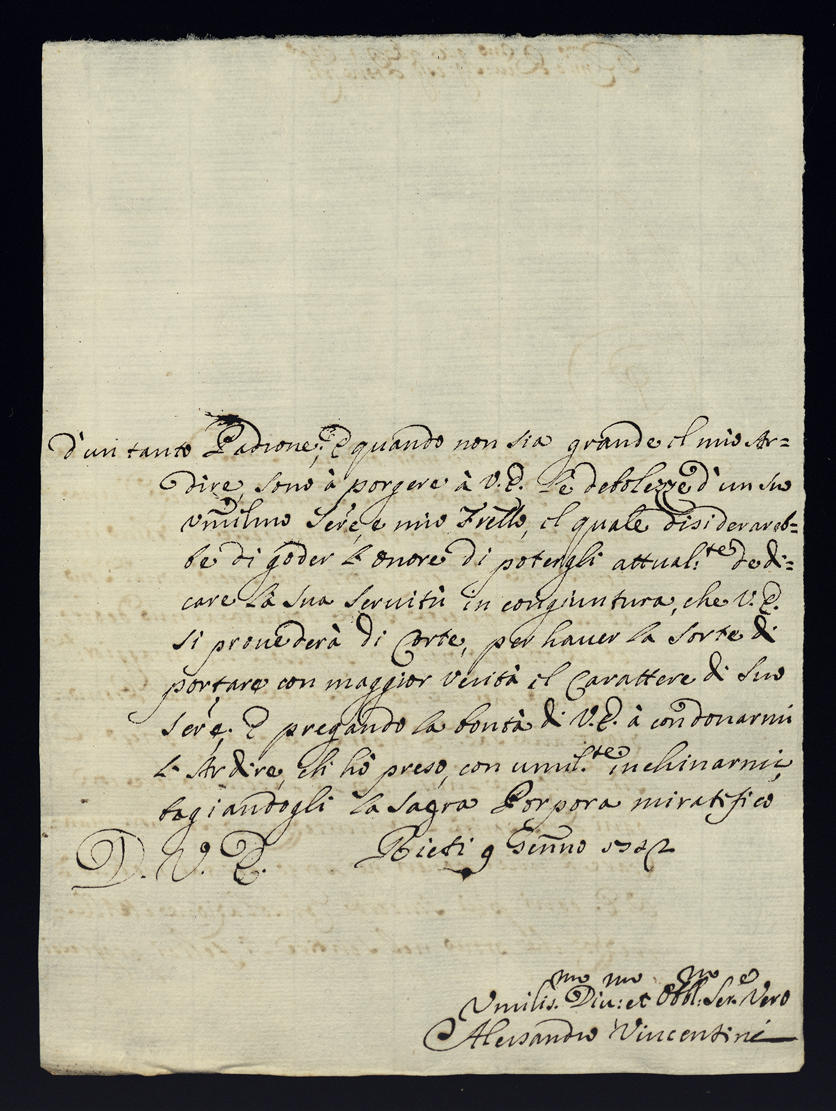 d'un tanto Padrone; E quando non sia grande il mio Ar=
dire, sono à porgere à V.E. le debolezze d'un suo
Vmilmo Ser:e, e mio Frello, il quale disiderareb=
be di goder l'onore di potergli attual:te dedi=
care la sua seruitù in congiuntura, che V.E.
si prouederà di Corte, per hauer la sorte di
portare con maggior verità il Carattere di suo
Ser:e. E pregando la bontà di V.E. à condonarmi
l'Ardire, ch'hò preso, con umil:te inchinarmi,
bagiandogli la Sagra Porpora mi ratifico
D. V. E. Rieti 9 Genno
Vmilis:mo Diu:mo et Obbl:mo Ser:e Vero
Alessandro Vincentini